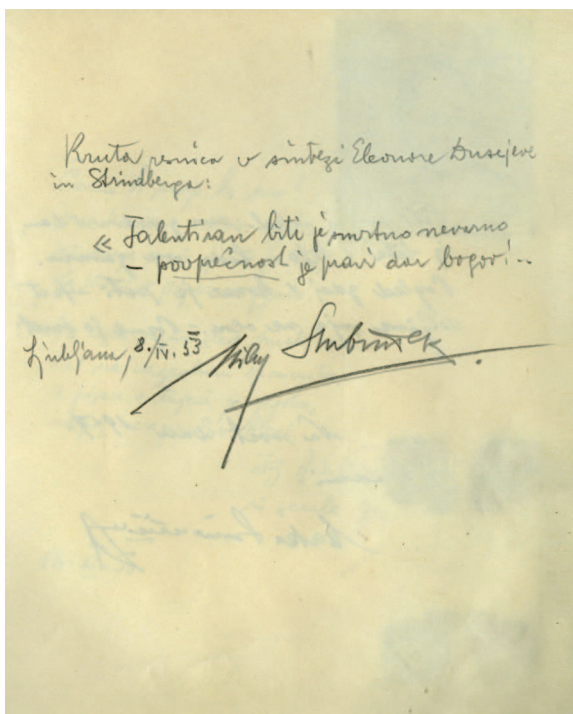 Kruta resnica v sintezi Eleonore Dusejeve
in Strindberga:
« Talentiran biti je smrtno nevarno
– povprečnost je pravi dar bogov! ..
Ljubljana, 8./IV. 53